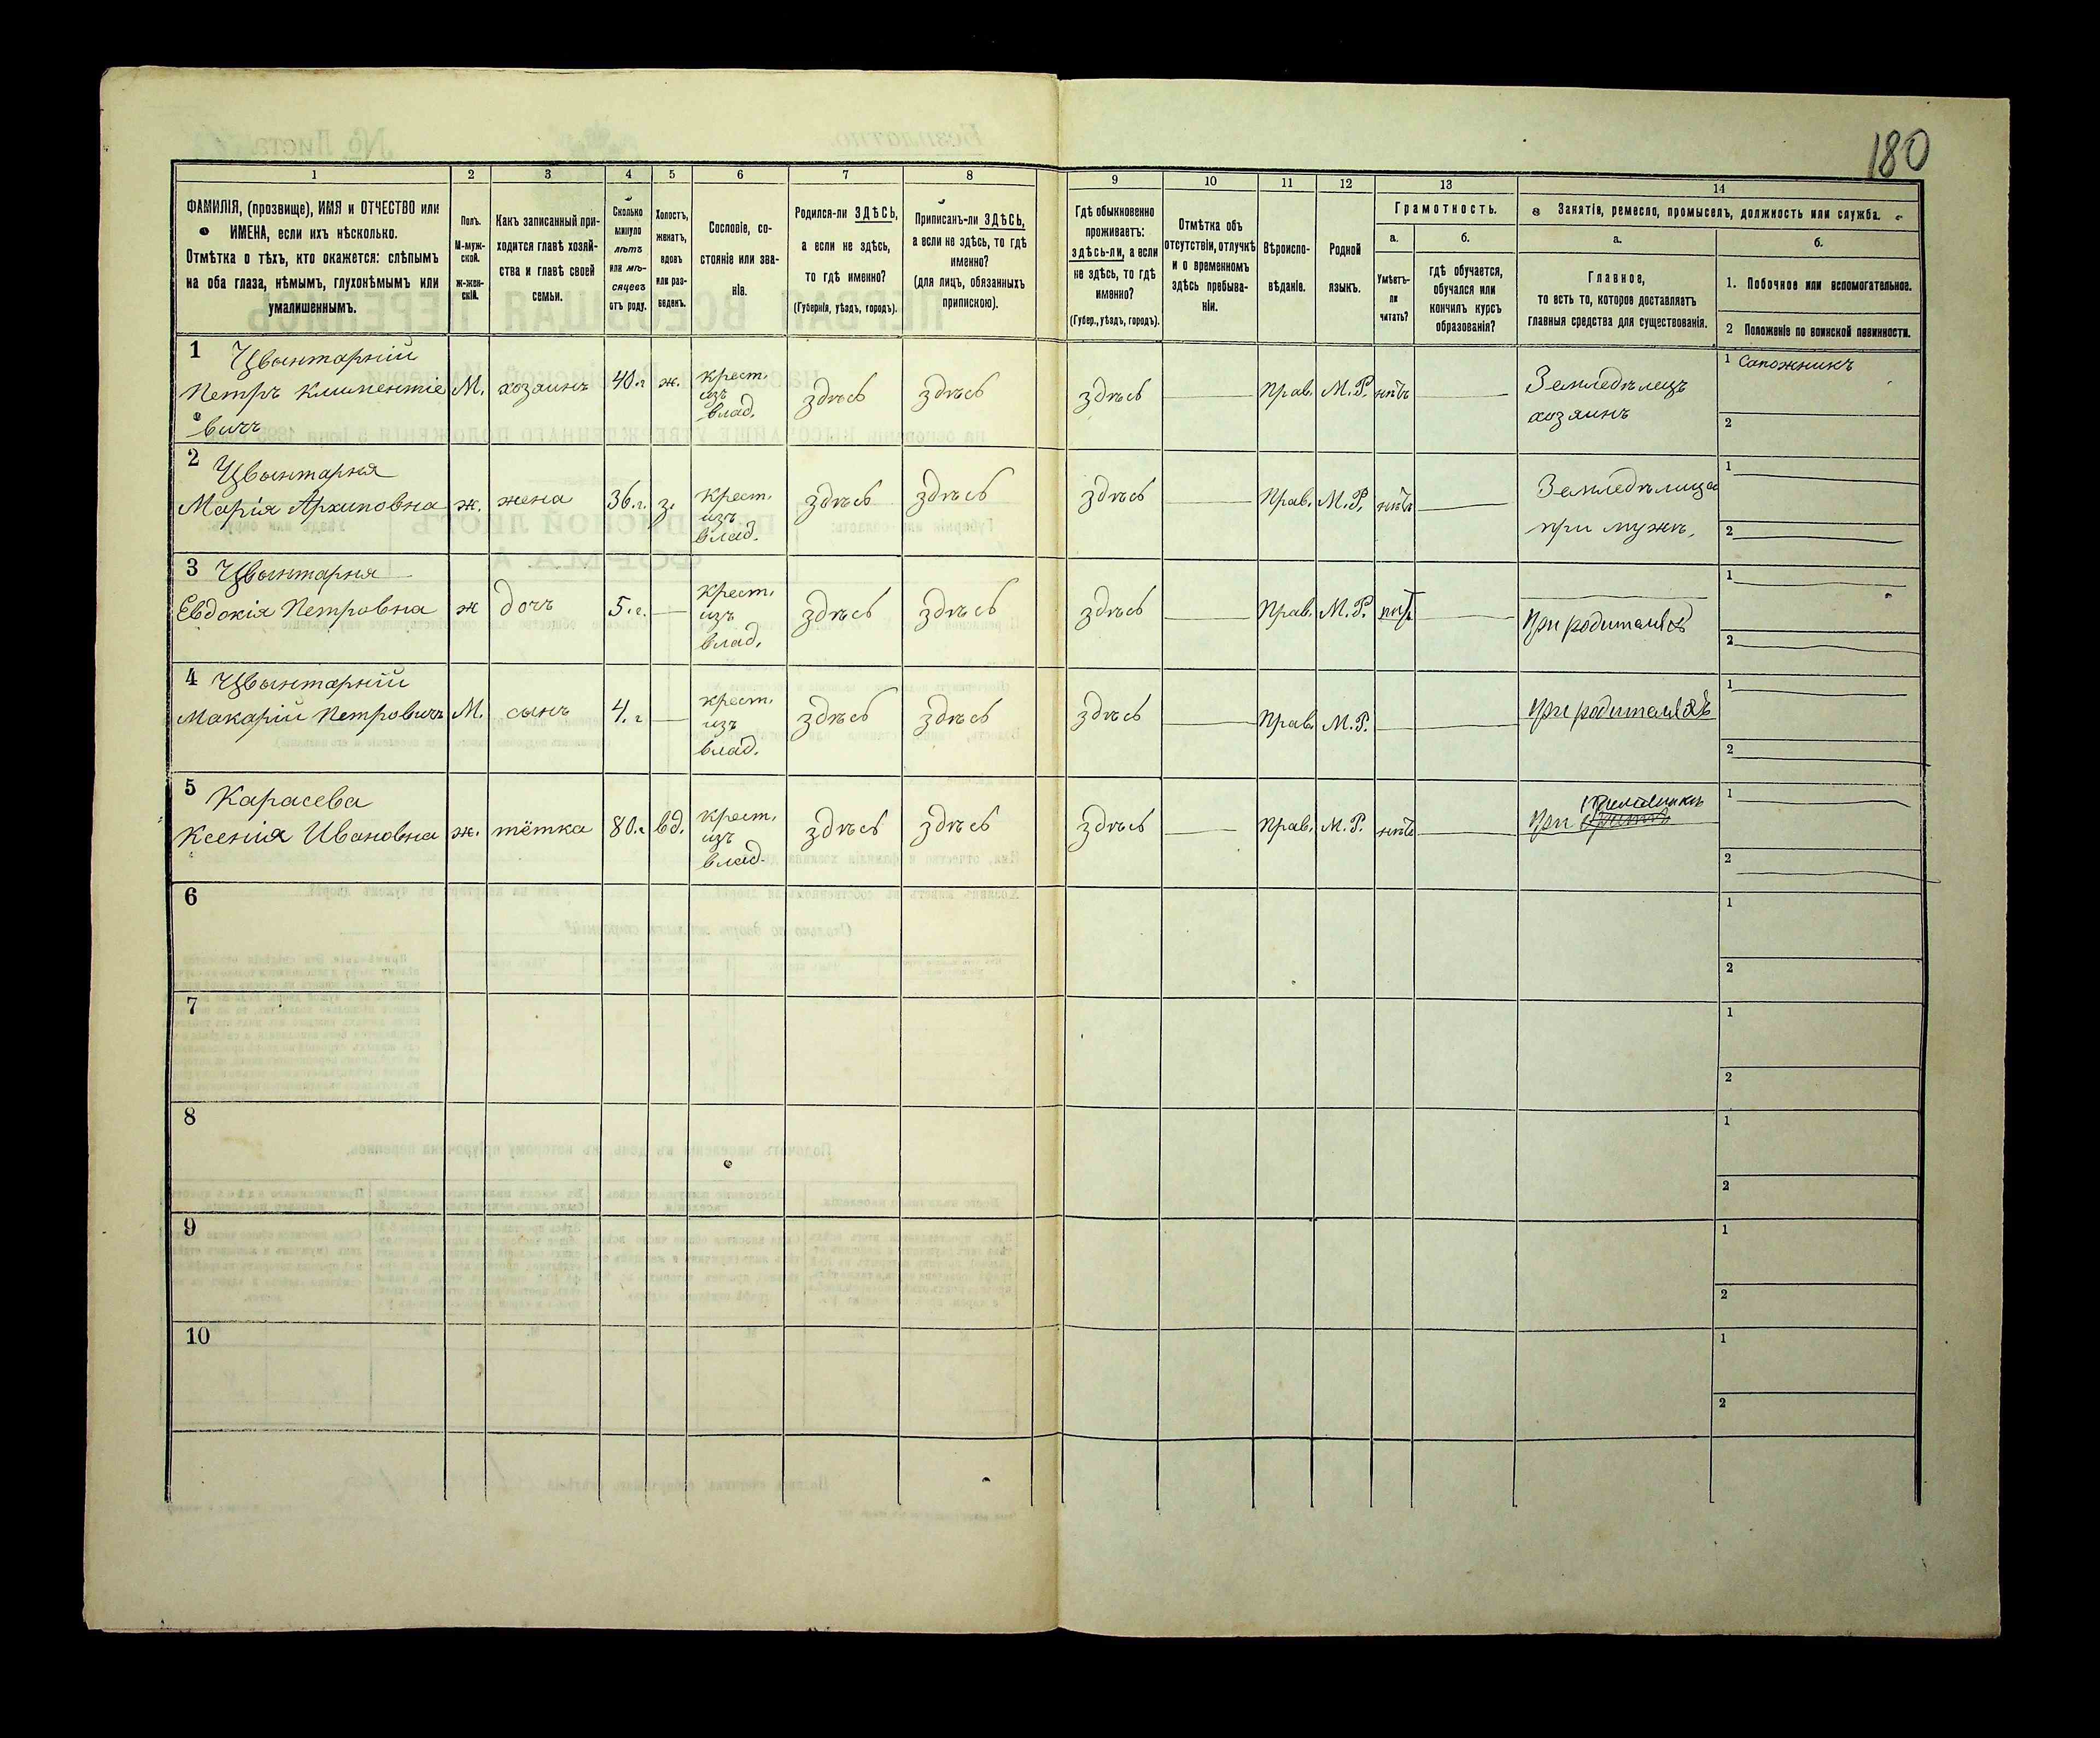 180
1 2 3 4 5 6 7 8 9 10 11 12 13 14
ФАМИЛІЯ, (прозвище), ИМЯ и ОТЧЕСТВО или
ИМЕНА, если ихъ нѣсколько.
Отмѣтка о тѣхъ, кто окажется: слѣпымъ
на оба глаза, нѣмымъ, глухонѣмымъ или
умалишеннымъ.
Полъ.
М-муж-
ской.
ж-жен-
скій.
Какъ записанный при-
ходится главѣ хозяй-
ства и главѣ своей
семьи.
Сколько
минуло
лѣтъ
или мѣ-
сяцевъ
отъ роду.
Холостъ,
женатъ,
вдовъ
или раз-
веденъ.
Сословіе, со-
стояніе или зва-
ніе.
Родился-ли ЗДѢСЬ,
а если не здѣсь,
то гдѣ именно?
(Губернія, уѣздъ, городъ).
Приписанъ-ли ЗДѢСЬ,
а если не здѣсь, то гдѣ
именно?
(для лицъ, обязанныхъ
припискою).
Гдѣ обыкновенно
проживаетъ:
здѣсь-ли, а если
не здѣсь, то гдѣ
именно?
(Губер., уѣздъ, городъ).
Отмѣтка объ
отсутствіи, отлучкѣ
и о временномъ
здѣсь пребыва-
ніи.
Вѣроиспо-
вѣданіе.
Родной
языкъ.
Грамотность.
а.
Умѣетъ-
ли
читать?
б.
гдѣ обучается,
обучался или
кончилъ курсъ
образованія?
Занятіе, ремесло, промыселъ, должность или служба.
а.
Главное,
то есть то, которое доставляетъ
главныя средства для существованія.
б.
1. Побочное или вспомогательное.
2 Положеніе по воинской повинности.
1 Цвынтарній
Петръ Климентіе
вичъ
М. хозяинъ 40.г ж.
крест.
изъ
влад.
здѣсь здѣсь здѣсь Прав. М.Р. нѣтъ
Земледѣлецъ
хозяинъ
1 Сапожникъ
2
2 Цвынтарня
Марія Архиповна ж. жена 36.г. з.
крест.
изъ
влад.
здѣсь здѣсь здѣсь Прав. М.Р. нѣтъ
Земледѣлица
при мужѣ.
1
2
3 Цвынтарня
Евдокія Петровна ж дочь 5.г.
крест.
изъ
влад.
здѣсь здѣсь здѣсь Прав. М.Р. нѣтъ
при родителяхъ
1
2
4 Цвынтарній
Макарій Петровичъ М. сынъ 4.г
крест.
изъ
влад.
здѣсь здѣсь здѣсь Прав. М.Р.
при родителяхъ
1
2
5 Карасева
Ксенія Ивановна ж. тётка 80.г вд.
крест.
изъ
влад.
здѣсь здѣсь здѣсь Прав. М.Р. нѣтъ
при
1
2
6
1
2
7
1
2
8
1
2
9
1
2
10
1
2